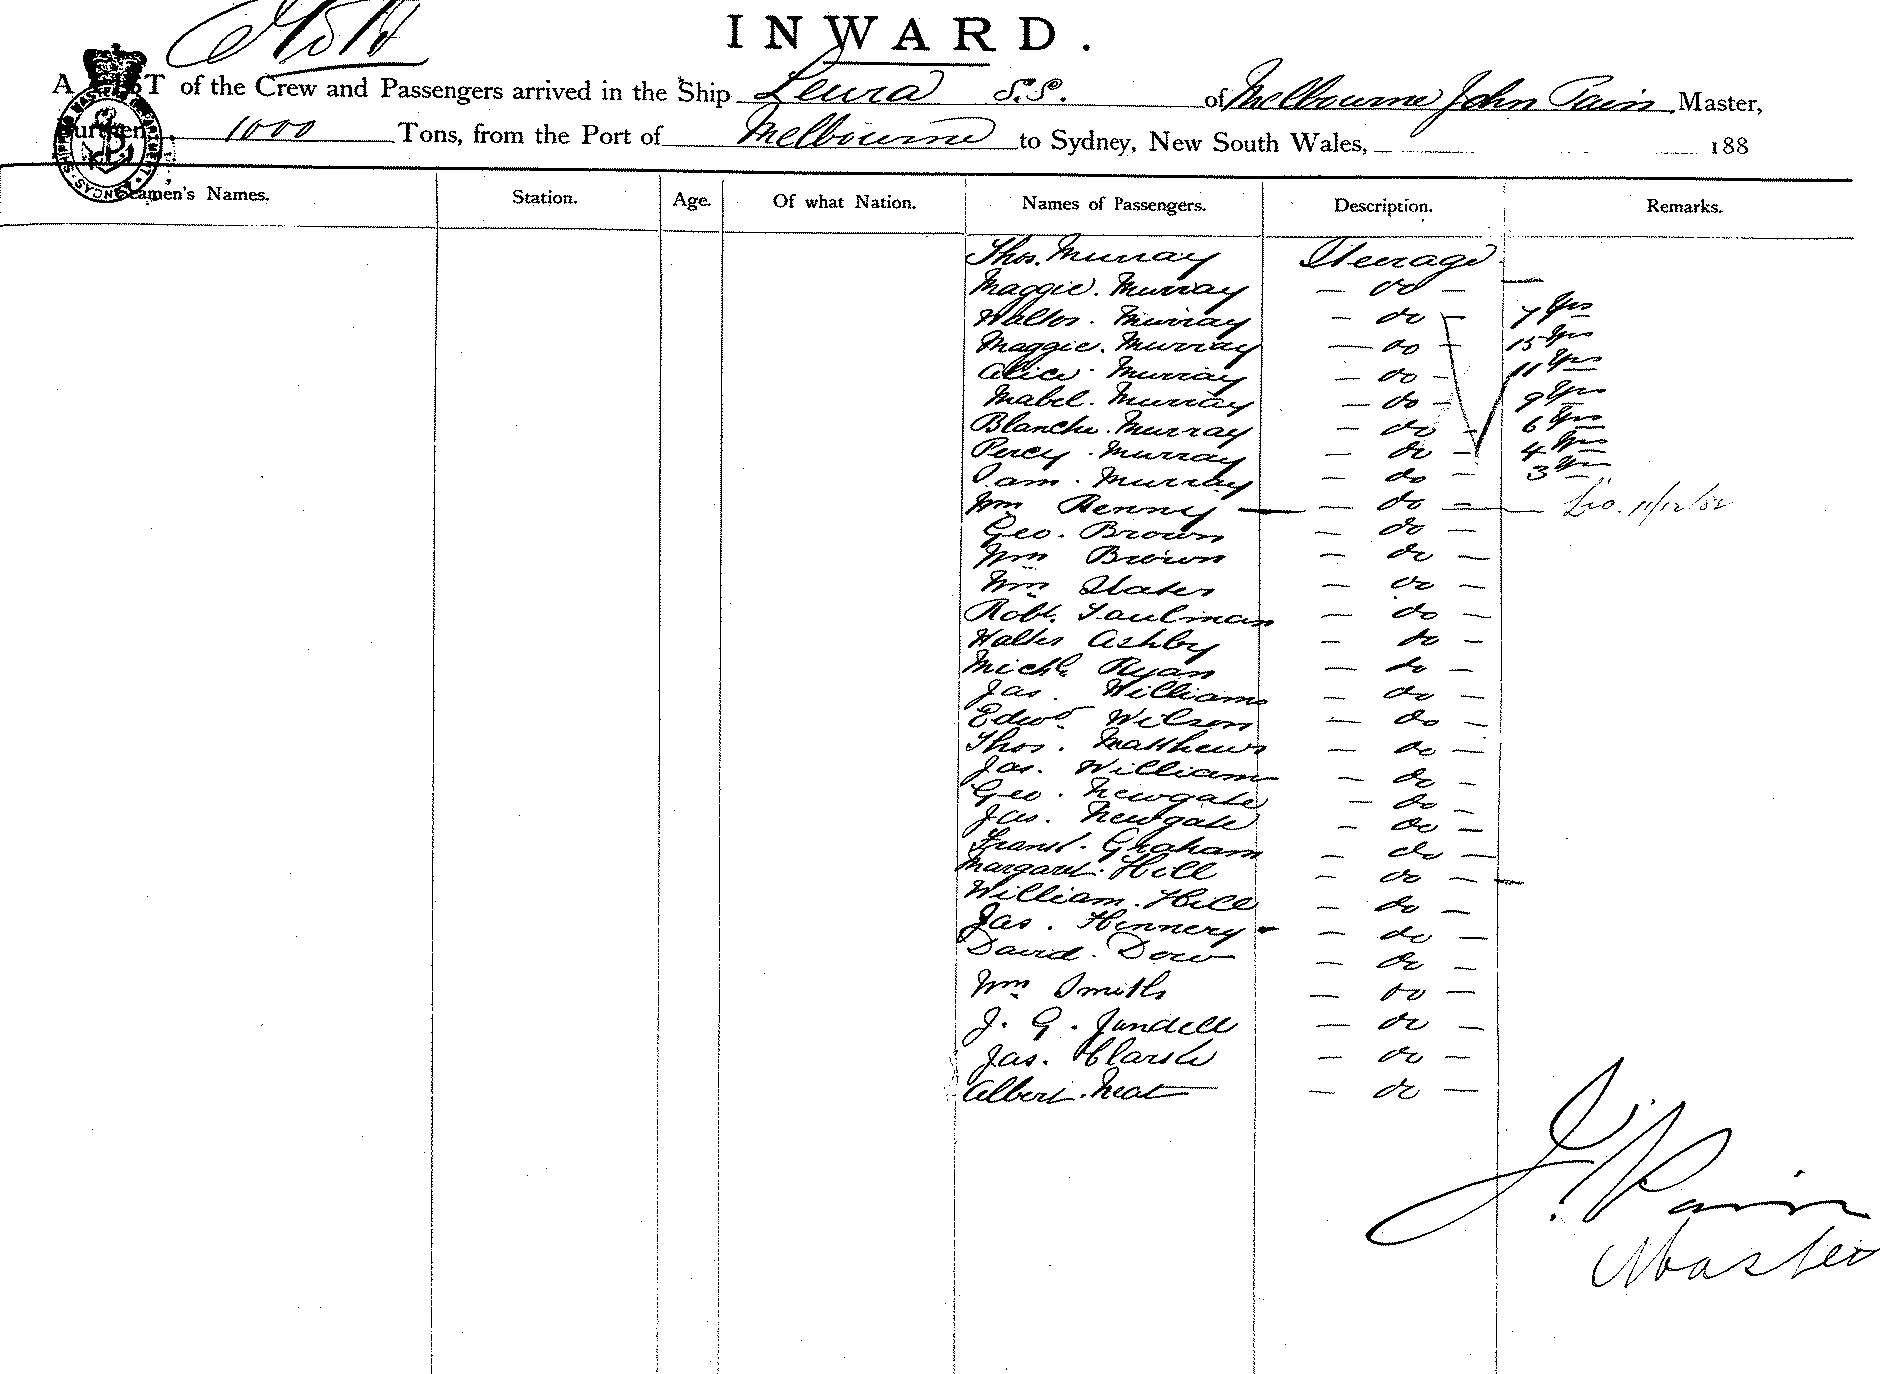 INWARD.
A LIST of the Crew and Passengers arrived in the Ship Leura S.S. of Melbourne John Pain Master,
Burthen 1000 Tons, from the Port of Melbourne to Sydney, New South Wales, 188
Seamen's Names. Station. Age. Of what Nation. Names of Passengers. Description. Remarks.
Thos. Murray Steerage
Maggie. Murray — do —
Walter. Murray — do — 7 yrs
Maggie. Murray — do — 15 yrs
Alice. Murray — do — 11 yrs
Mabel. Murray — do — 9 yrs
Blanche. Murray — do — 6 yrs
Percy. Murray — do — 4 yrs
Sam. Murray — do — 3 yrs
Wm Henney — do — 11/12/82
Geo. Brown — do —
Wm Brown — do —
Wm Slater — do —
Robt. — do —
Walter Ashby — do —
Michl. Ryan — do —
Jas. Williams — do —
Edwd. Wilson — do —
Thos. Matthews — do —
Jas. Williams — do —
Geo. Newgate — do —
Jas. Newgate — do —
Frank. Graham — do —
Margaret. Hill — do —
William. Hill — do —
Jas. Hinnery — do —
David. Dow — do —
Wm Smith — do —
J. G. Jundell — do —
Jas. Clarke — do —
Albert. Neat — do —
J. Pain
Master